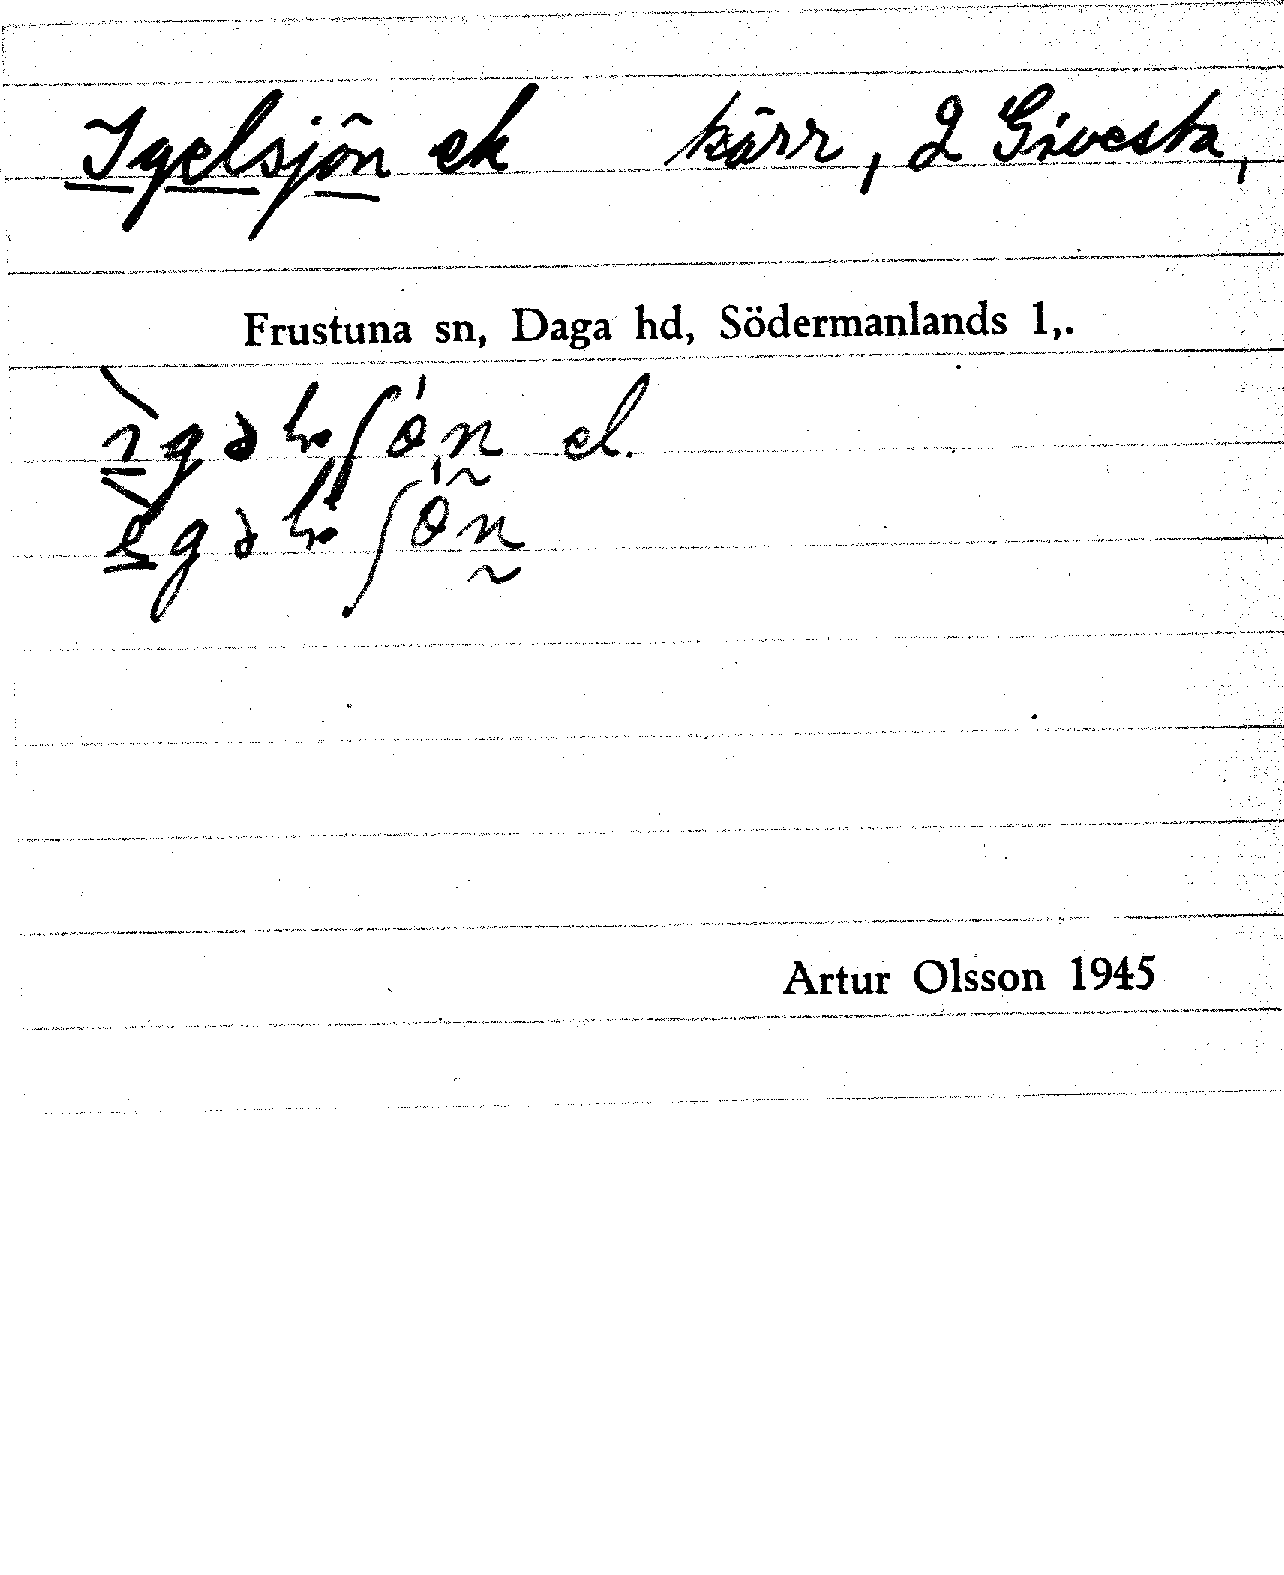 Igelsjön ek kärr, 2 Givesta,
Frustuna sn, Daga hd, Södermanlands l,.
el.
Artur Olsson 1945